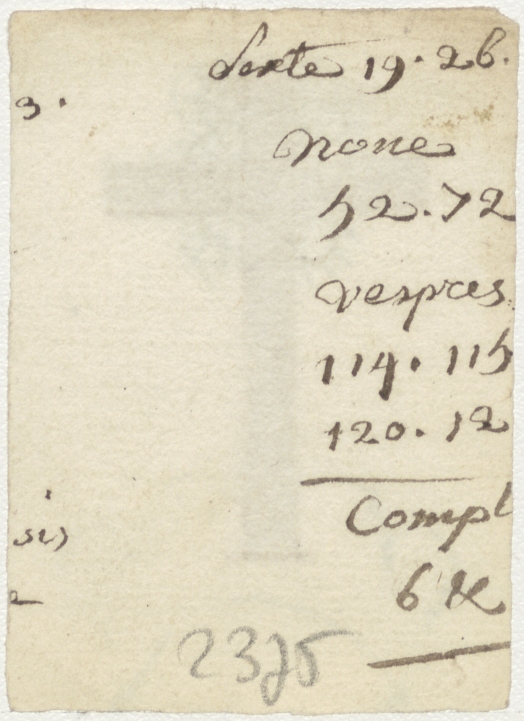 Sexte 19. 26.
3.
none
52. 72
vespres
114. 115
120. 12
Compl
sis
6 &c
2375